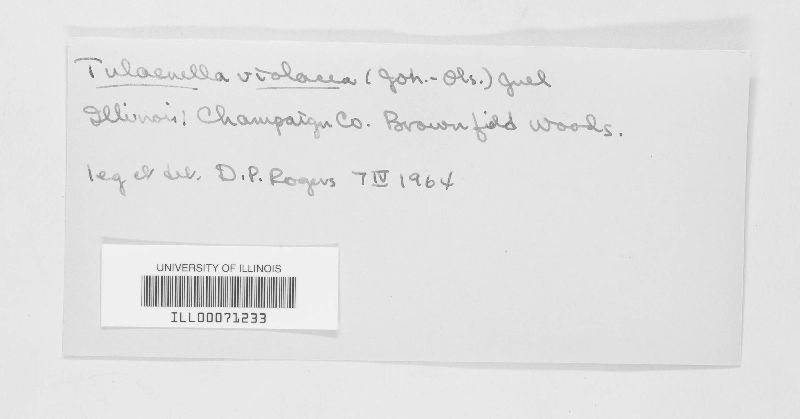 Tulasnella violacea (Joh.-Ols.) Juel
Illinois: Champaign Co. Brownfield Woods.
leg et det. D.P. Rogers 7 IV 1964
UNIVERSITY OF ILLINOIS
ILL00071233